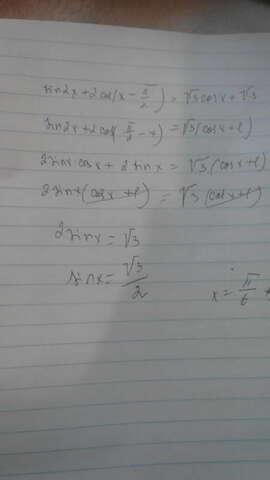 sin2x + 2cos(x - π/2) = √3 cosx + √3
sin2x + 2cos(π/2 - x) = √3(cosx + 1)
2sinx cosx + 2 sinx = √3(cosx + 1)
2sinx(cosx + 1) = √3(cosx + 1)
2sinx = √3
sinx = √3/2
x = π/6 +